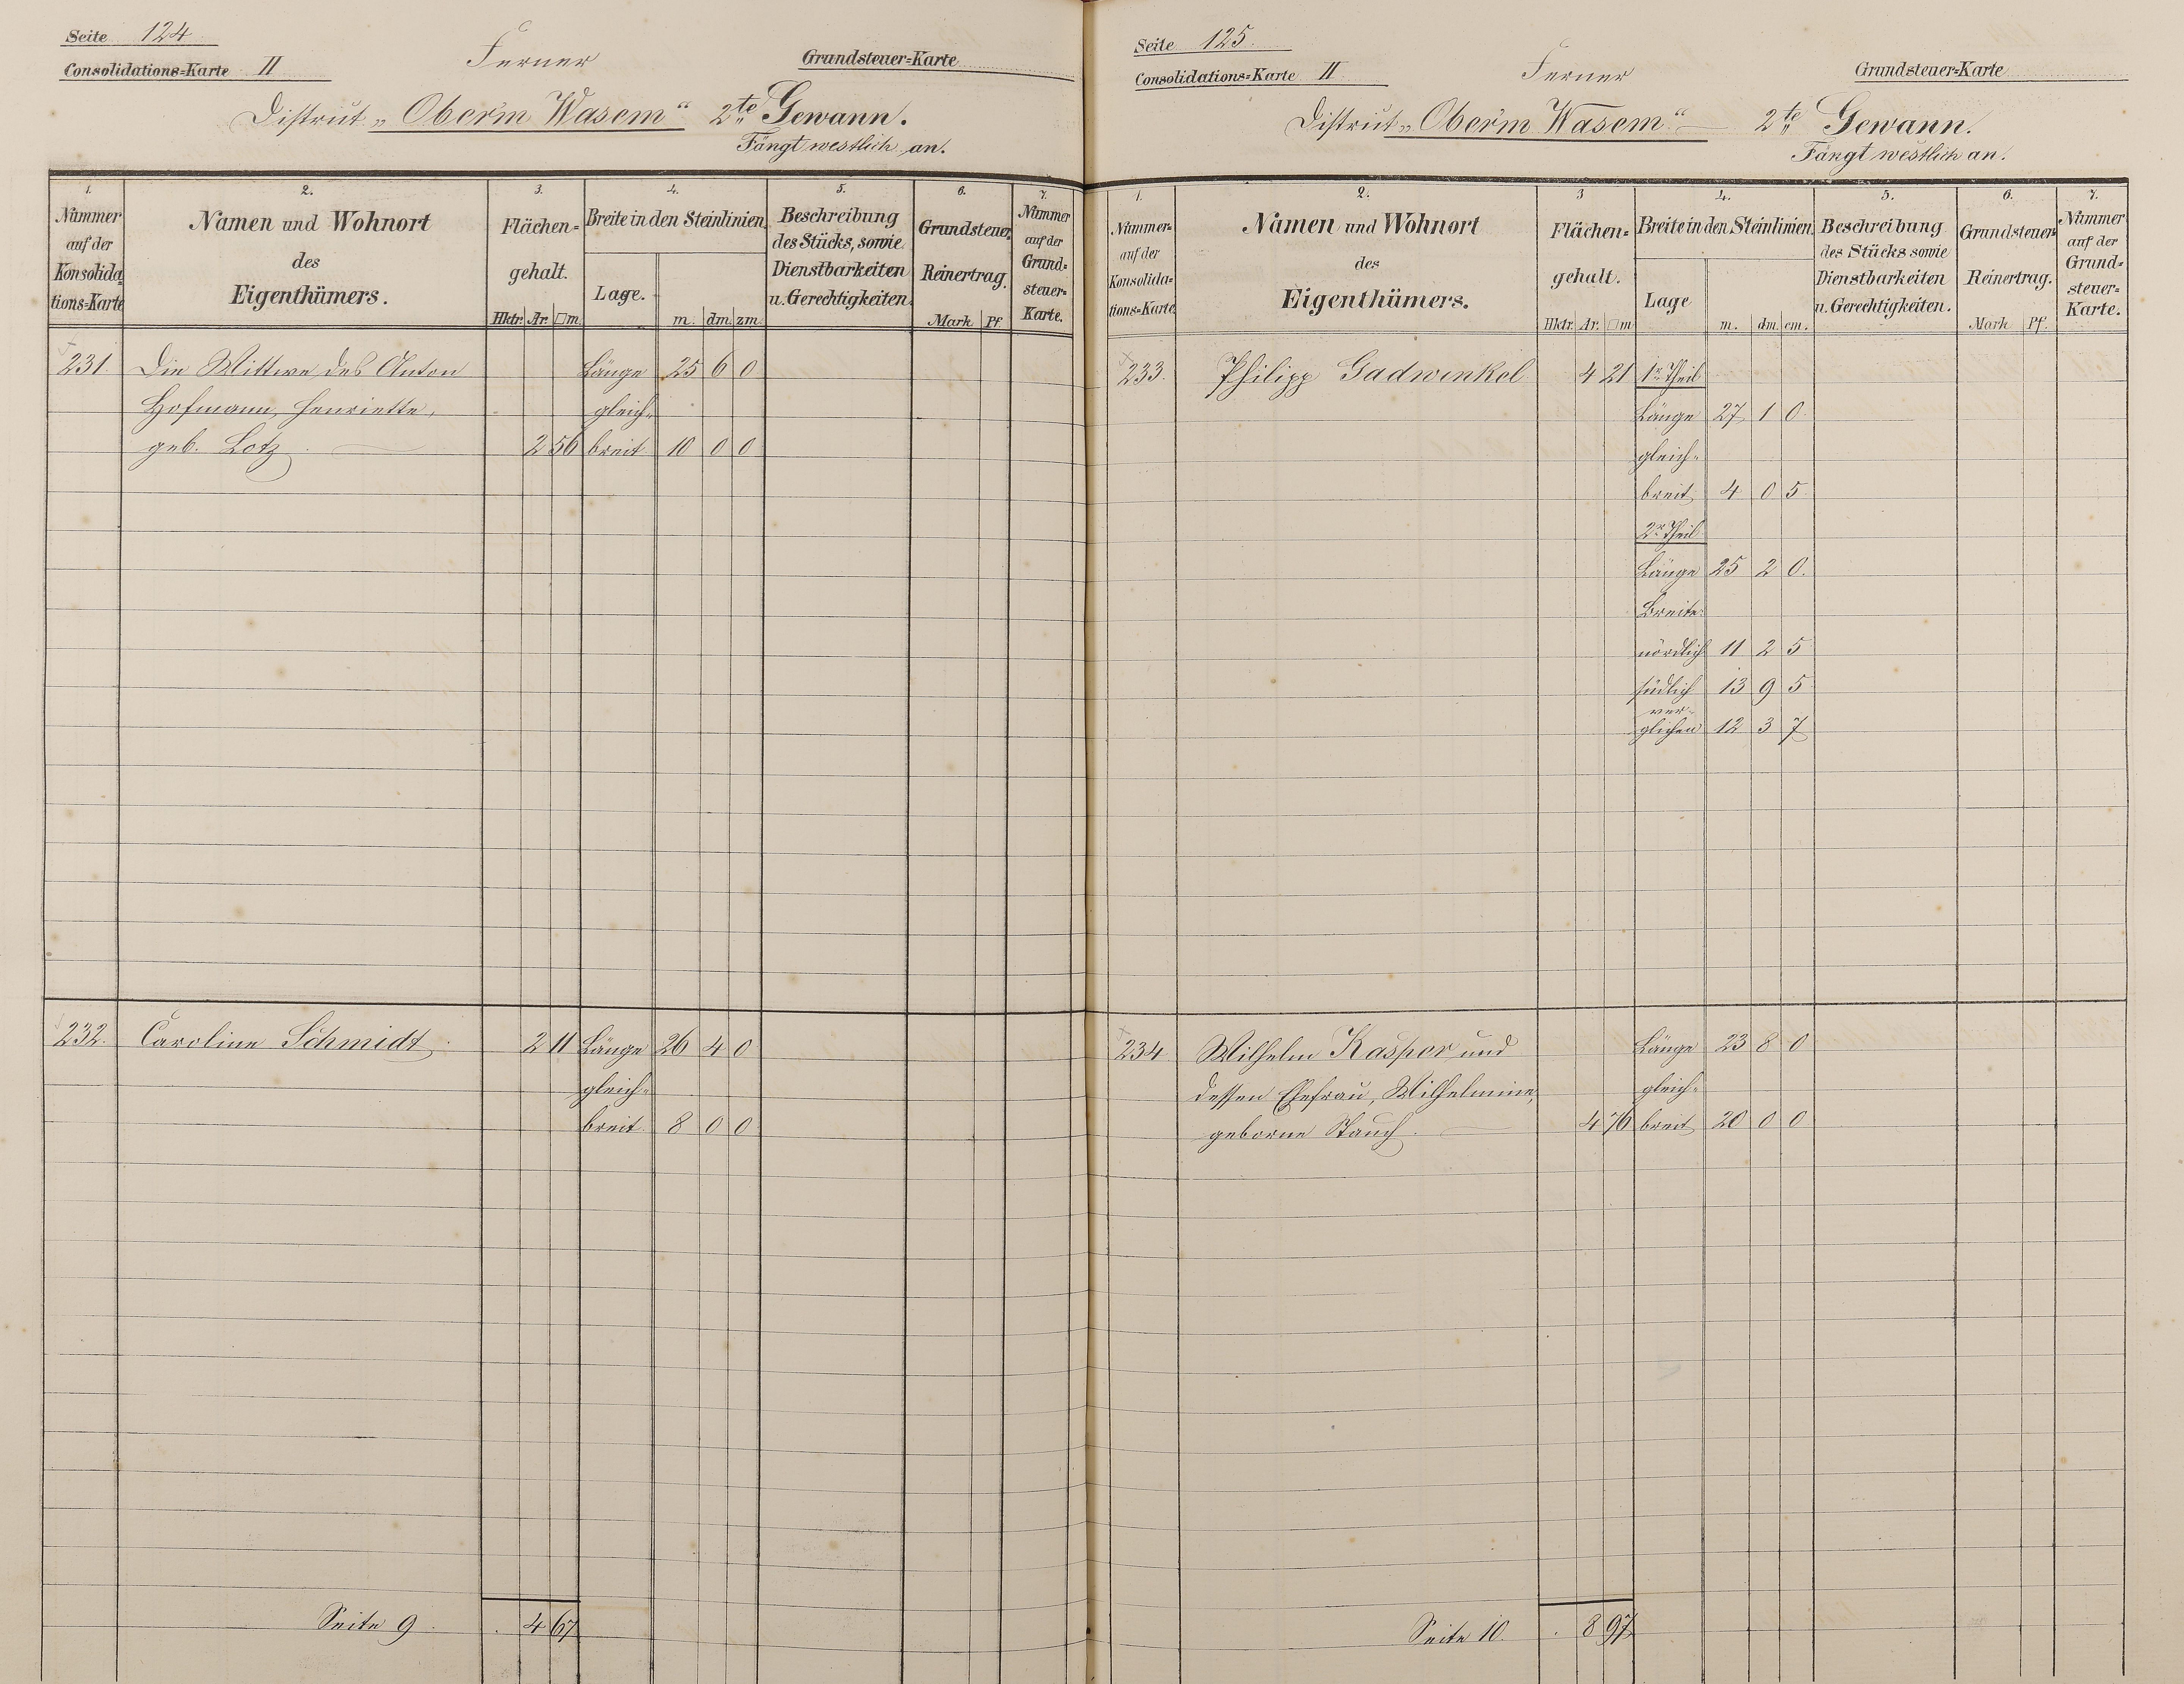 Seite 124
Consolidations=Karte II
Ferner
Grundsteuer=Karte
District „Ober'm Wasem“ 2te Gewann.
Fängt westlich an.
1. 2. 3. 4. 5. 6. 7.
Nummer auf der Konsolida=tions=Karte
Namen und Wohnort des Eigenthümers.
Flächen=gehalt.
Hktr. Ar. □m
Breite in den Steinlinien.
Lage. m. dm. zm.
Beschreibung des Stücks, sowie Dienstbarkeiten u. Gerechtigkeiten.
Grundsteuer Reinertrag.
Mark Pf.
Nummer auf der Grund=steuer=Karte.
231. Die Wittwe des Anton Länge 25 6 0
Hofmann, Henriette, gleich=
geb. Lotz. 2 56 breit 10 0 0
232. Caroline Schmidt. 2 11 Länge 26 4 0
gleich=
breit 8 0 0
Seite 9. . 4 67
Seite 125.
Consolidations=Karte II
Ferner
Grundsteuer=Karte
District „Ober'm Wasem“ 2te Gewann.
Fängt westlich an.
1. 2. 3 4. 5. 6. 7.
Nummer auf der Konsolida=tions=Karte
Namen und Wohnort des Eigenthümers.
Flächen=gehalt.
Hktr. Ar. □m
Breite in den Steinlinien.
Lage m. dm. cm.
Beschreibung des Stücks sowie Dienstbarkeiten u. Gerechtigkeiten.
Grundsteuer Reinertrag.
Mark Pf.
Nummer auf der Grund=steuer=Karte.
233. Philipp Gadwinkel 4 21 1r Theil
Länge 27 1 0
gleich=
breit 4 0 5
2r Theil
Länge 25 2 0.
Breite
nördlich 11 2 5
südlich 13 9 5
ver=
glichen 12 3 7
234. Wilhelm Kasper und Länge 23 8 0
dessen Ehefrau, Wilhelmine, gleich=
geborne Stauch. 4 76 breit 20 0 0
Seite 10. . 8 97